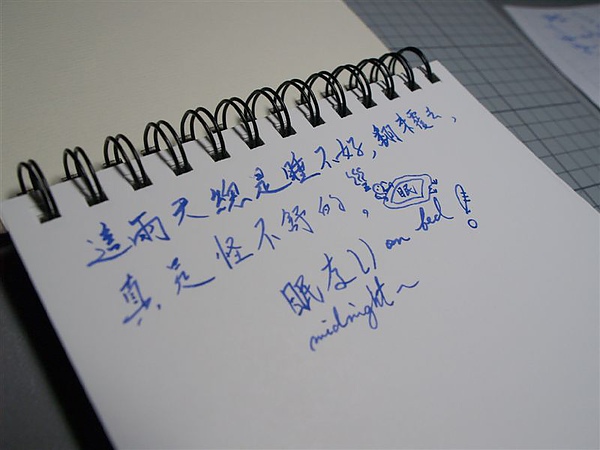 這兩天總是睡不好,翻來覆去,
真是怪不舒的,眠
眠 on bed!
midnight~